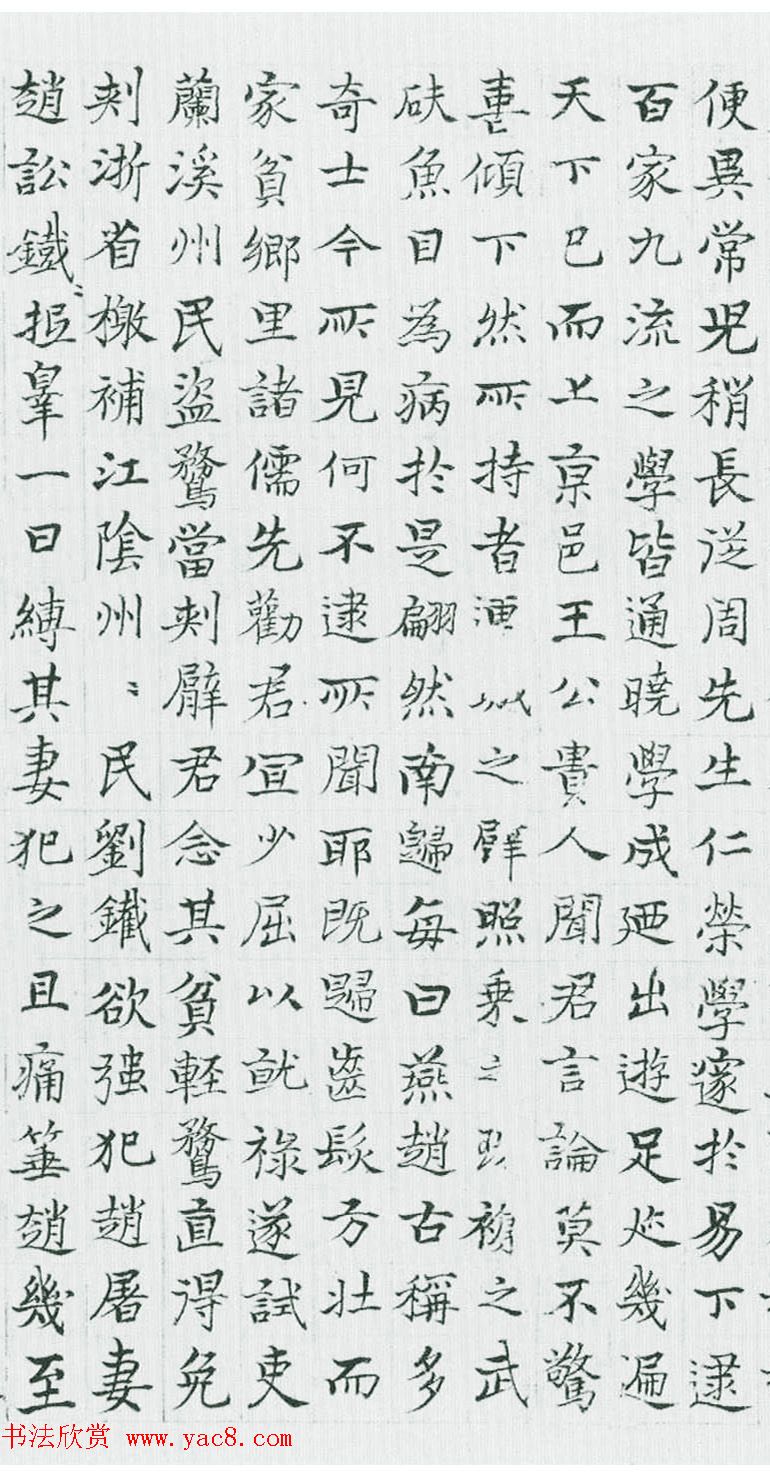 便異常児稍長從周先生仁榮學邃於易下逮
百家九流之學皆通曉學成廼出遊足迹幾遍
天下已而上京邑王公貴人聞君言論莫不驚
喜傾下然所持者連城之璧照乘之珎複之武
砆魚目為病於是翩然南歸每曰燕趙古稱多
奇士今所見何不逮所聞耶既歸齒髮方壯而
家貧鄉里諸儒先勸君宜少屈以就祿遂試吏
蘭溪州民盜鶩當刺臂君念其貧輕鶩直得免
刺浙省檄補江陰州〻民劉鐵欲强犯趙屠妻
趙訟鐵〻挋辠一日縛其妻犯之且痛箠趙幾至
书法欣赏 www.yac8.com